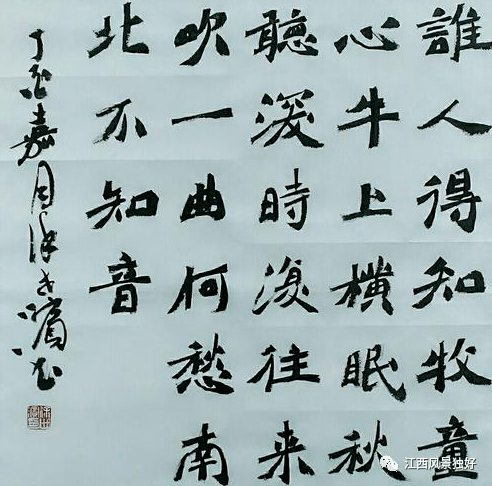 誰人得知牧童
心牛上横眠秋
聽深時復往來
吹一曲何愁南
北不知音
丁酉嘉月
江西风景独好